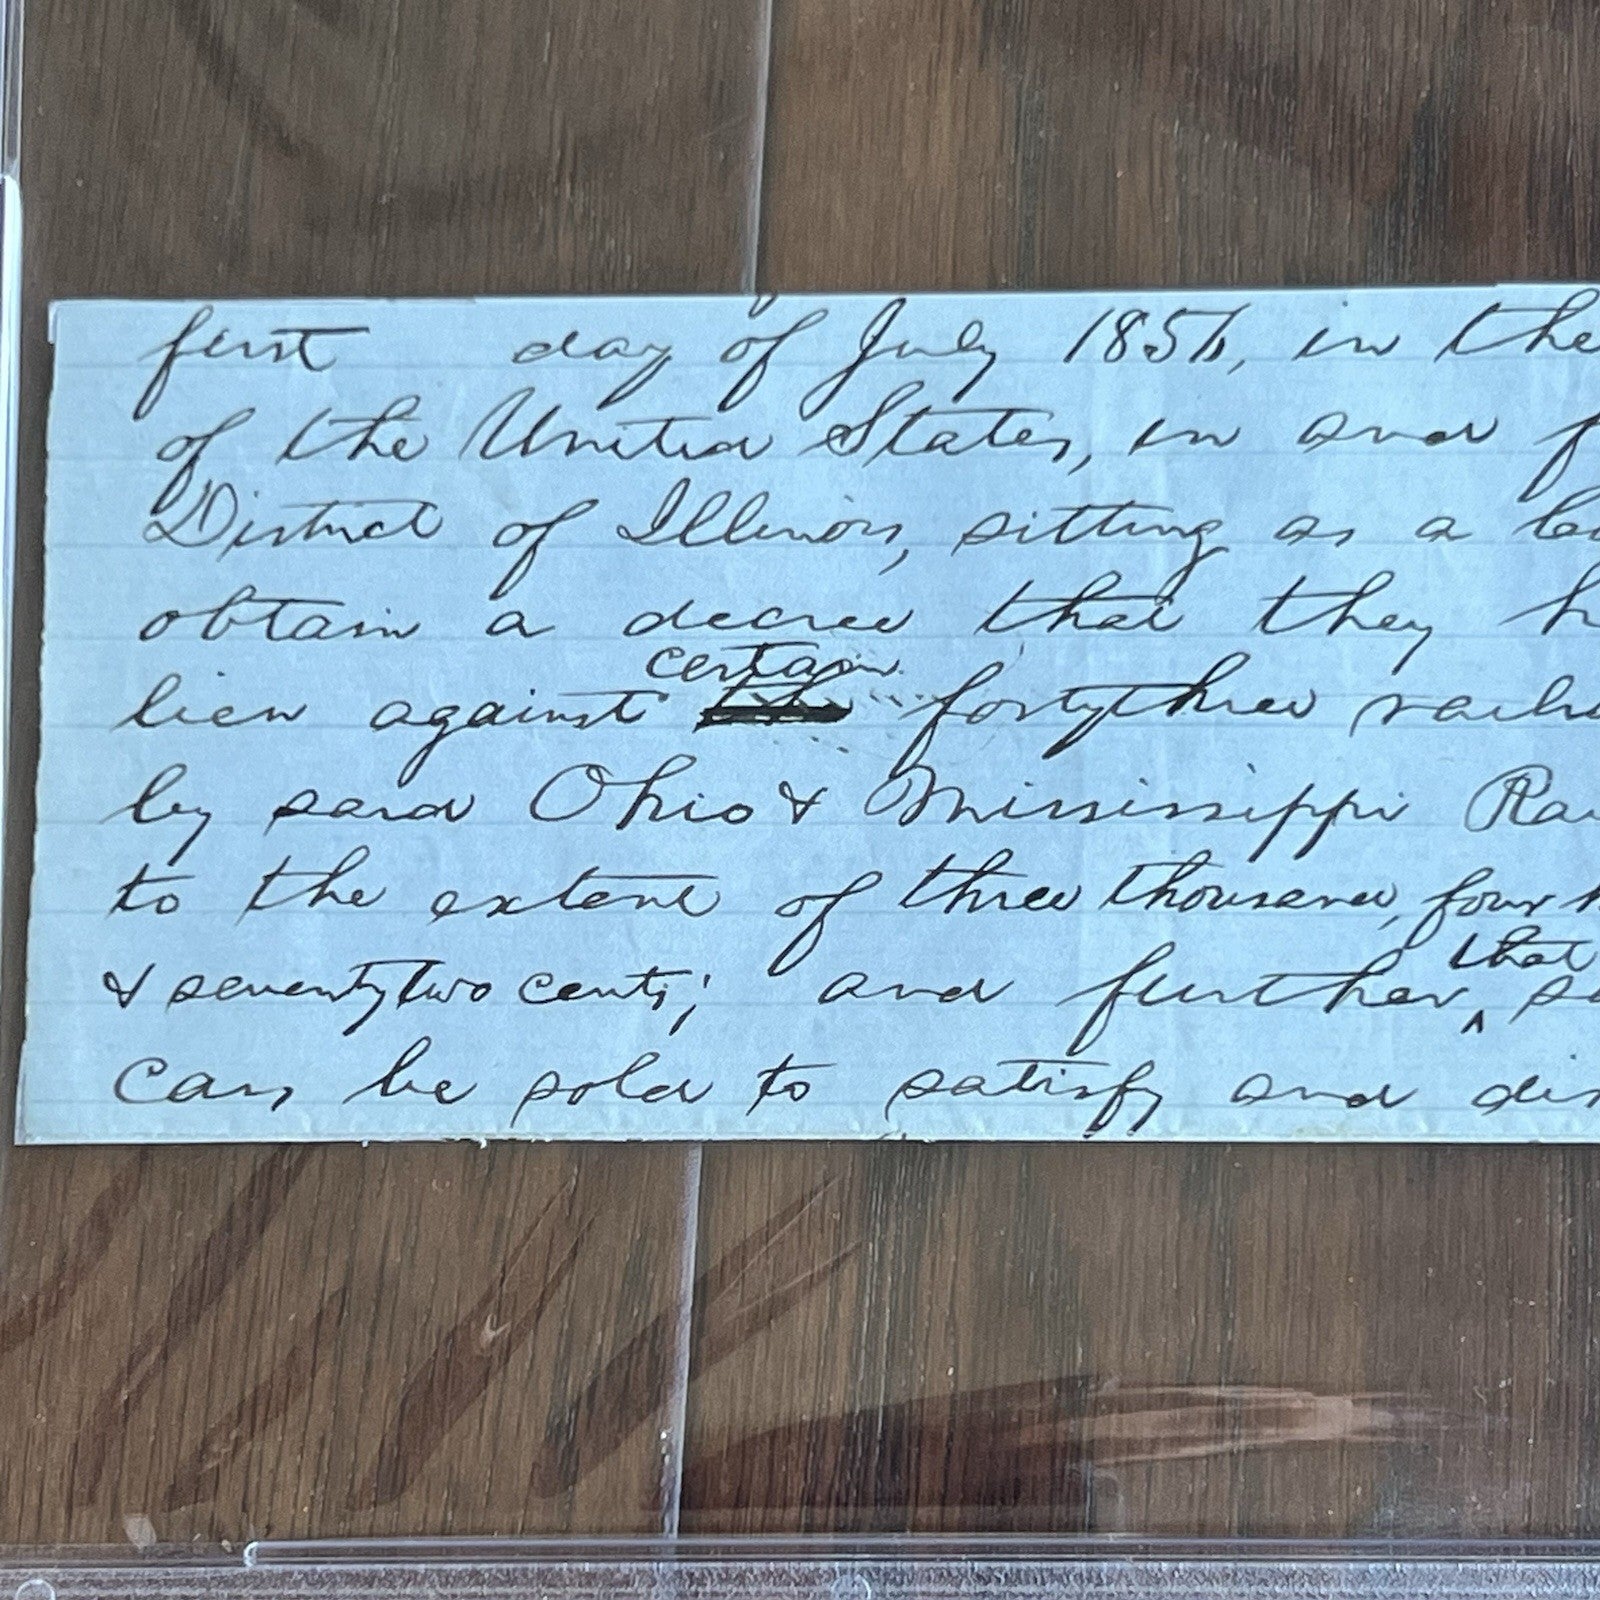 first day of July 1856, in the
of the United States, in and f
District of Illinois, sitting as a
obtain a decree that they h
certain
lien against fortythree
by said Ohio & Mississippi
to the extent of three thousand, four h
that
& seventytwo cents; and further
cars be sold to satisfy and dis